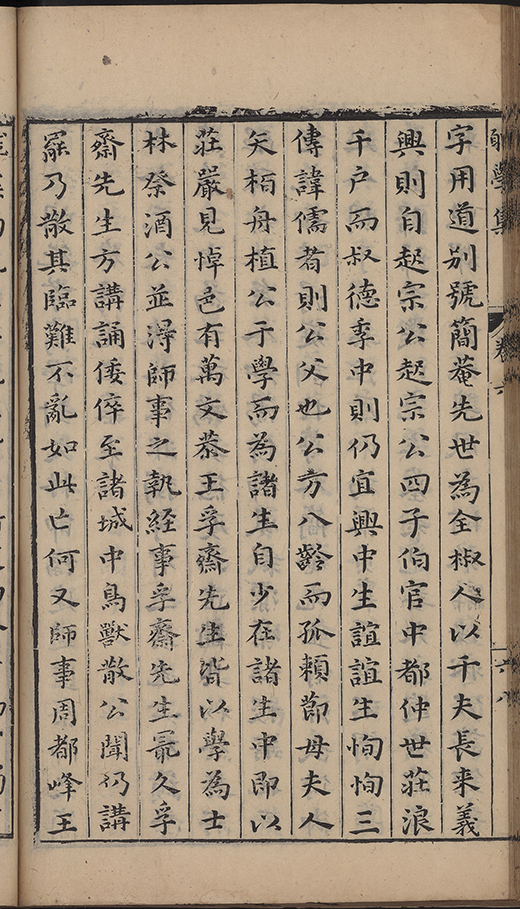 學集 卷六 六八
字用道別號簡菴先世為全椒人以千夫長来義
興則自起宗公起宗公四子伯官中都仲世莊浪
千户而叔德季中則仍宜興中生誼誼生恂恂三
傳諱儒者則公父也公方八齡而孤頼節母夫人
矢栢舟植公于學而為諸生自少在諸生中即以
莊嚴見悼邑有萬文恭王孚齋先生皆以學為士
林祭酒公並淂師事之執経事孚齋先生最久孚
齋先生方講誦倭倅至諸城中鳥獸散公聞仍講
罷乃散其臨難不亂如此亡何又師事周都峰王